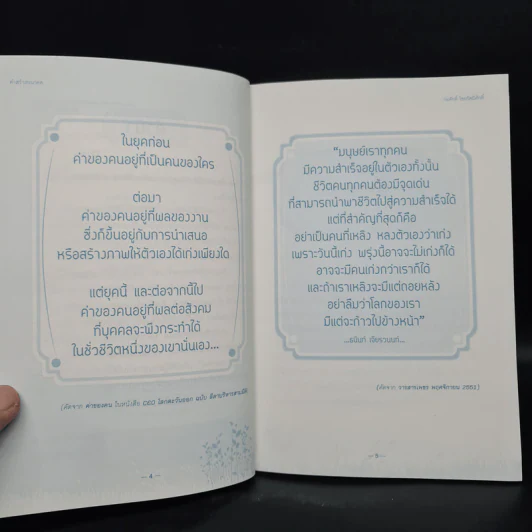 ในยุคก่อน
ค่าของคนอยู่ที่เป็นคนของใคร
ต่อมา
ค่าของคนอยู่ที่ผลของงาน
ซึ่งก็ขึ้นอยู่กับการนำเสนอ
หรือสร้างภาพให้ตัวเองได้เก่งเพียงใด
แต่ยุคนี้ และต่อจากนี้ไป
ค่าของคนอยู่ที่ผลต่อสังคม
ที่บุคคลจะพึงกระทำได้
ในชั่วชีวิตหนึ่งของเขานั่นเอง...
(คัดจาก ค่าของคน ในหนังสือ CEO โลกตะวันออก ฉบับ
— 4 —
"มนุษย์เราทุกคน
มีความสำเร็จอยู่ในตัวเองทั้งนั้น
ชีวิตคนทุกคนต้องมีจุดเด่น
ที่สามารถนำพาชีวิตไปสู่ความสำเร็จได้
แต่ที่สำคัญที่สุดก็คือ
อย่าเป็นคนที่เหลิง หลงตัวเองว่าเก่ง
เพราะวันนี้เก่ง พรุ่งนี้อาจจะไม่เก่งก็ได้
อาจจะมีคนเก่งกว่าเราก็ได้
และถ้าเราเหลิงจะมีแต่ถอยหลัง
อย่าลืมว่าโลกของเรา
มีแต่จะก้าวไปข้างหน้า"
...ธนินท์ เจียรวนนท์...
(คัดจาก วารสารเพชร พฤศจิกายน 2551)
— 5 —